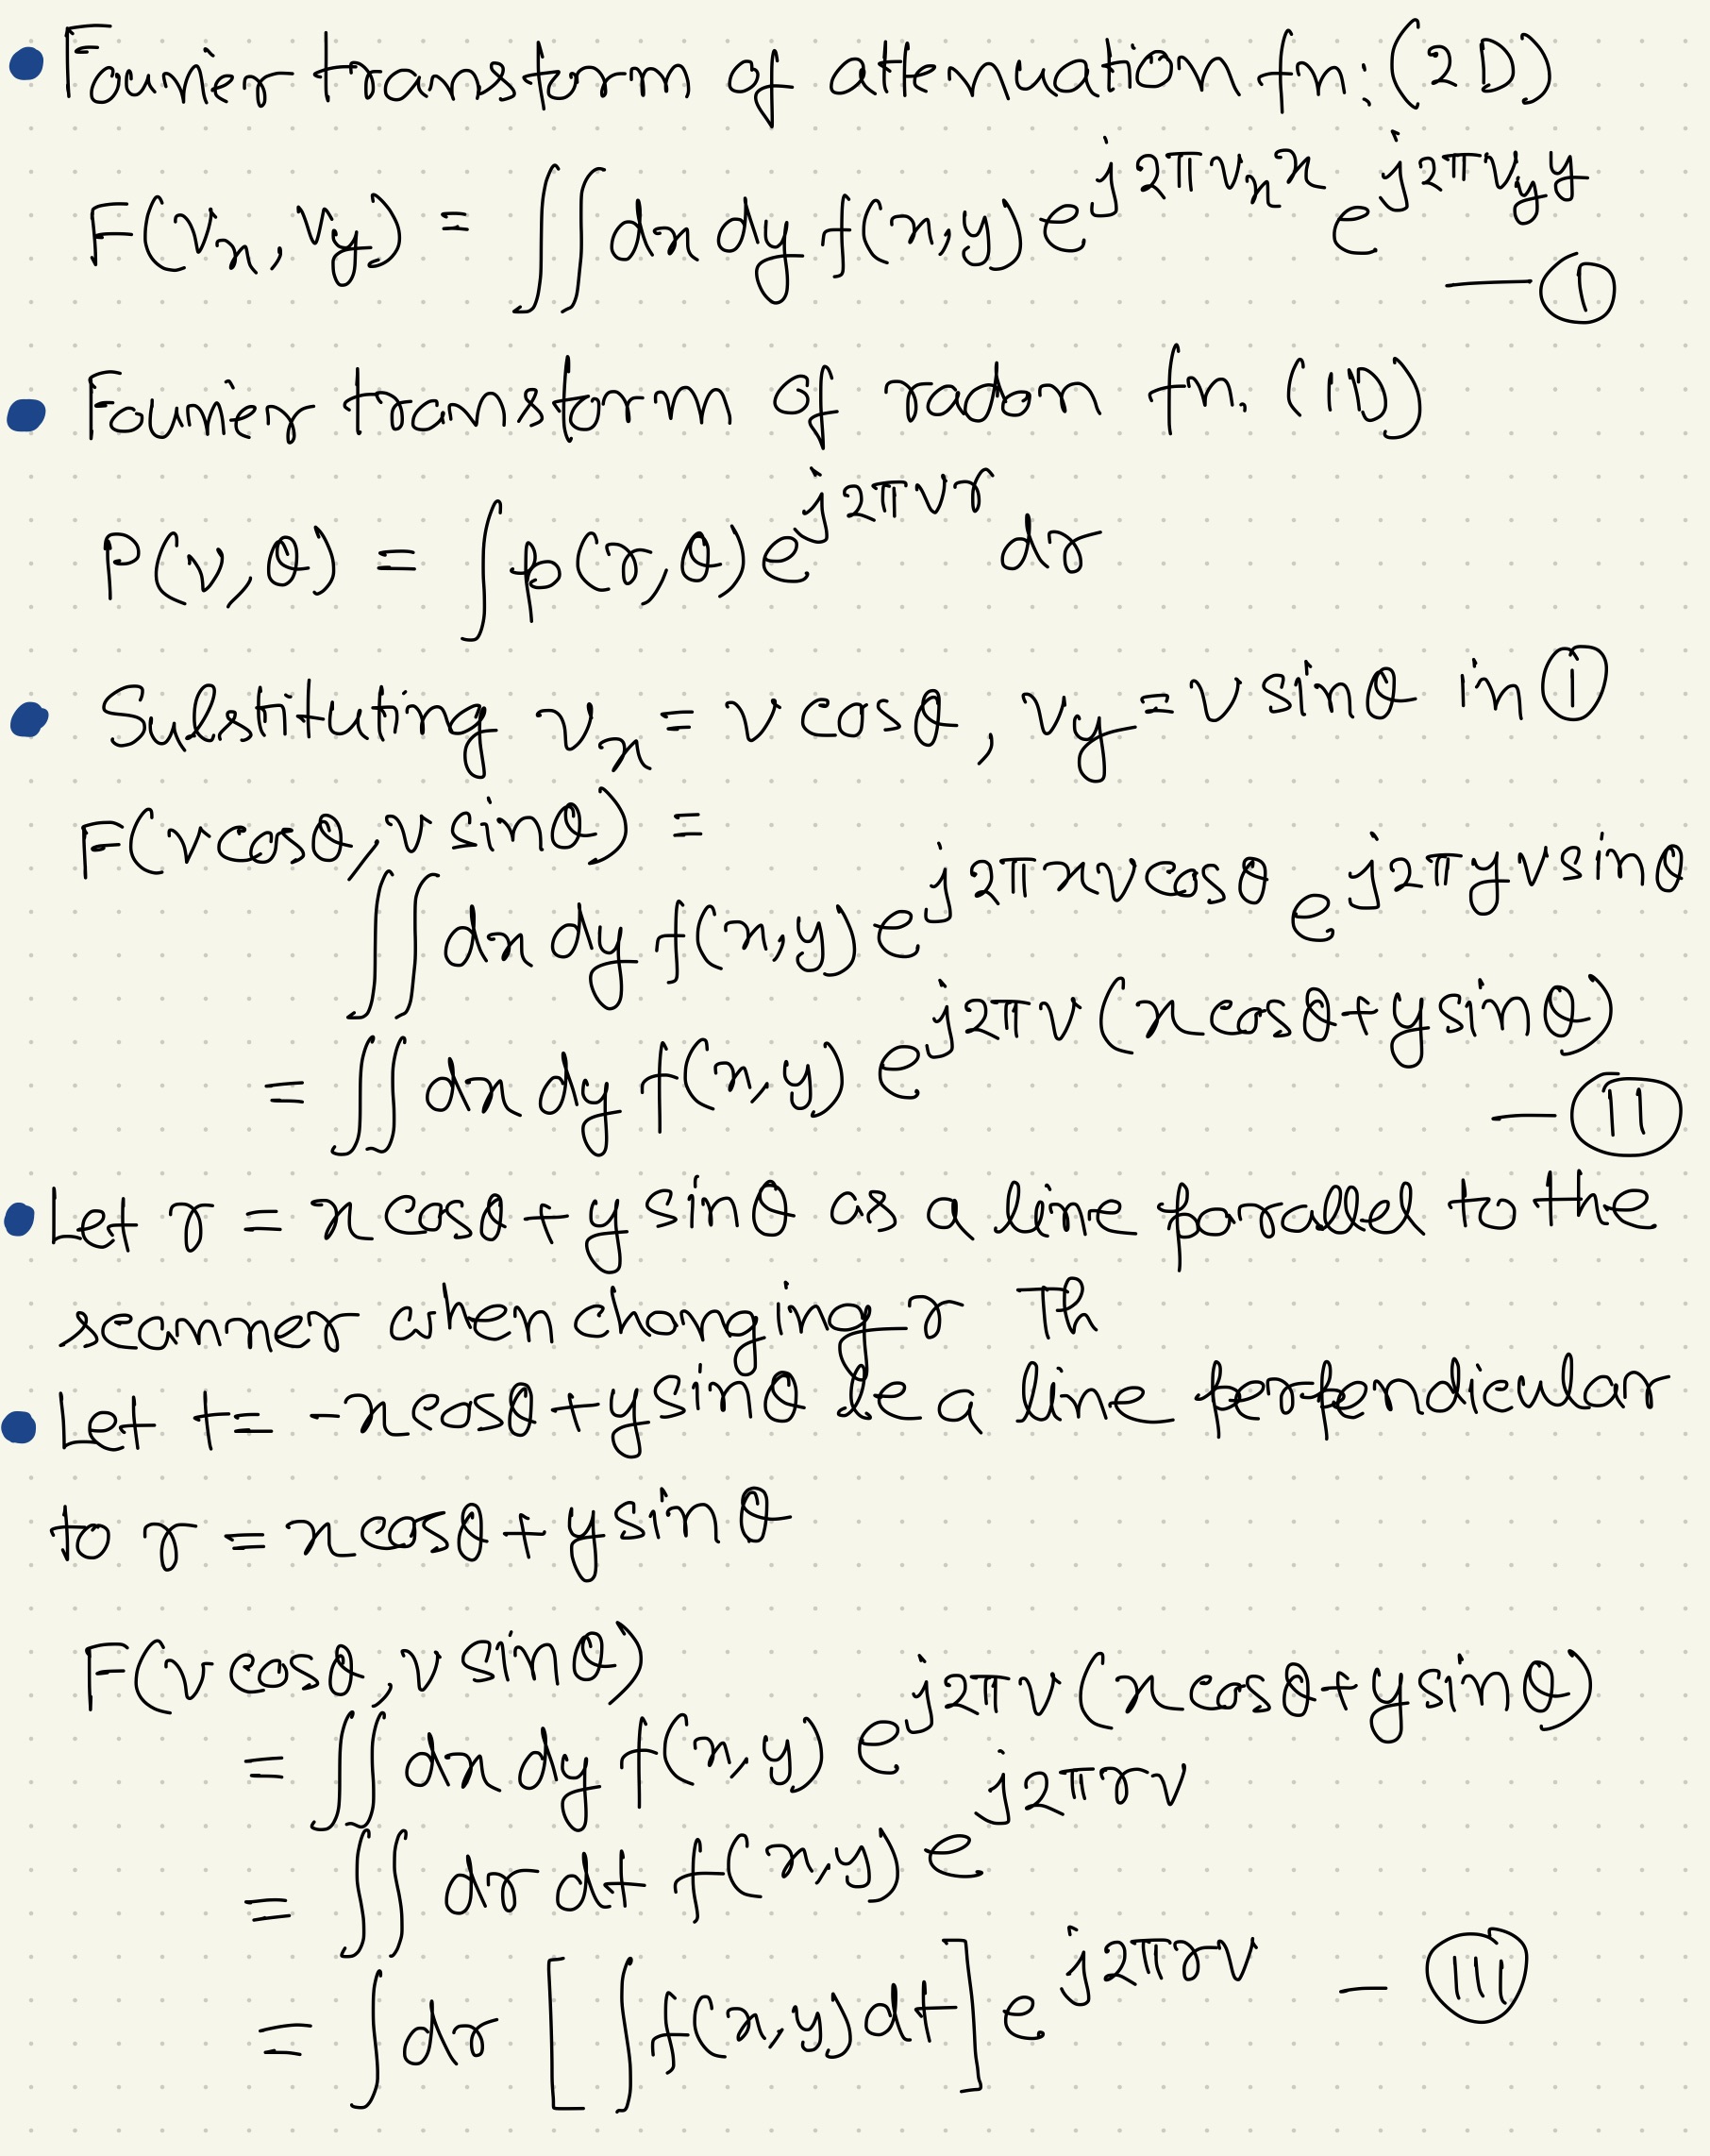 • Fourier transform of attenuation fn: (2D)
F(νx, νy) = ∬ dx dy f(x,y) e^{j2πνx x} e^{j2πνy y}
— Ⓘ
• Fourier transform of radon fn. (1D)
P(ν,θ) = ∫ p(r,θ) e^{j2πνr} dr
• Substituting νx = ν cosθ, νy = ν sinθ in Ⓘ
F(νcosθ, ν sinθ) =
∬ dx dy f(x,y) e^{j2πxνcosθ} e^{j2πyνsinθ}
= ∬ dx dy f(x,y) e^{j2πν(xcosθ+ysinθ)}
— (II)
• Let r = x cosθ + y sinθ as a line parallel to the
scanner when changing r Th
• Let t = -xcosθ + ysinθ be a line perpendicular
to r = xcosθ + ysinθ
F(ν cosθ, ν sinθ)
= ∬ dx dy f(x,y) e^{j2πν(xcosθ+ysinθ)}
= ∬ dr dt f(x,y) e^{j2πrν}
= ∫ dr [∫ f(x,y) dt] e^{j2πrν} — (III)